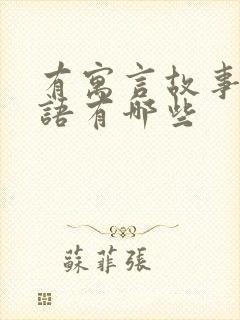 有寓言故事
語有哪些
蘇菲張